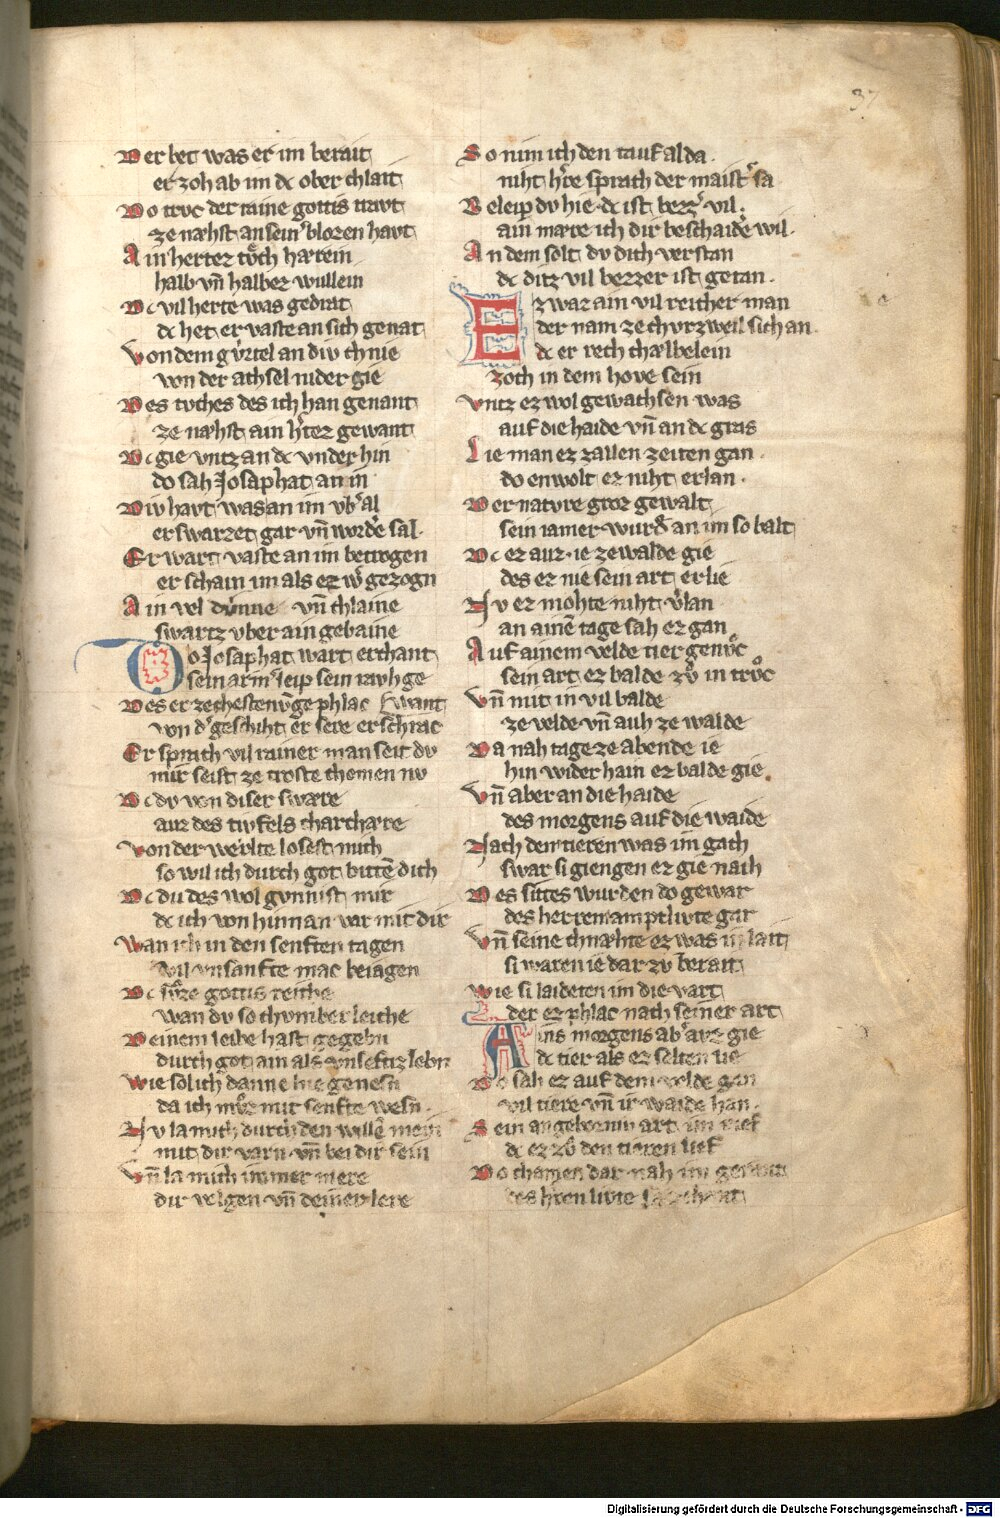 37
Der bet was er im berait
er zoh ab im dc ober chlait
Do truc der raine gottis trawt
ze næhst an seinˢ blozen havt
Ain herter tůch hærein
halb vn̄ halber wullein
Dc vil herte was gedrat
dc het er vaste an sich genat
Von dem gvrtel an div chnie
von der achsel nider gie
Des tvches des ich han genant
ze næhst ain hˢtez gewant
Dc gie vntz an dc vnder hin
do sah Josaphat an in
Div havt was an im vbˢal
erswarzet gar vn̄ wordē sal.
Er wart vaste an im betrogen
er schain im als ez wˢ gezogn
Ain vel dvnne vn̄ chlaine
swartz vber ain gebaine
Do Josaphat wart erchant
sein armˢ leip sein ravhge
Des er ze chestenvnge phlac want
von dˢ geschiht er sere erschrac
Er sprach vil rainer man seit dv
mir seist ze troste chomen nv
Dc dv von diser swære
auz des tivfels charchære
Von der werlte losest mich
so wil ich durch got bittē dich
Dc du des wol gvnnist mir
dc ich von hinnan var mit dir
Wan ich in den senften tagen
vil vnsanfte mac beiagen
Dc svͦze gottis reiche
wan dv so chvmberleiche
Deinem leibe hast gegebn
durch got ain als vnseftez lebn
Wie sol ich danne hie genesn
da ich mvͦz mit senfte wesn.
Nv la mich durch den willē mein
mit dir varn vn̄ bei dir sein
Vn̄ la mich immer mere
dir volgen vn̄ deiner lere
So nim ich den tauf alda.
niht hˢre sprach der maistˢ sa
Beleip dv hie dc ist bezzˢ vil.
ain mære ich dir beschaidē wil.
An dem solt dv dich verstan
dc ditz vil bezzer ist getan.
Ez was ain vil reicher man
der nam ze chvrzweil sich an.
dc er rech chælbelein
zoch in dem hove sein
Vntz ez wol gewachsen was
auf die haide vn̄ an dc gras
Lie man ez zallen zeiten gan
do enwolt ez niht erlan.
Der natvre groz gewalt
sein iamer wurdˢ an im so balt
Dc ez auz ie ze walde gie
des ez nie sein art erlie
Nv ez mohte niht vˢlan
an ainē tage sah ez gan
Auf ainem velde tier genvͦc
sein art ez balde zvͦ in trvͦc
Vn̄ mit in vil balde
ze velde vn̄ auh ze walde
Da nah tage ze abende ie
hin wider hain ez balde gie.
Vn̄ aber an die haide
des morgens auf die waide
Nach dem tieren was im gach
swar si giengen ez gie nach
Des sittes wurden do gewar
des herren amptlivte gar
Vn̄ seine chnæhte ez was in lait
si waren ie dar zv berait
Wie si laideten im die vart
der ez phlac nach seiner art
Ains morgens abˢ avz gie
dc tier als ez selten lie
Do sah ez auf dem velde gan
vil tiere vn̄ ir waide han.
Sein angeborniu art im rief
dc ez zvͦ den tieren lief
Do chamen dar nah im gerant
des hˢren livte
Digitalisierung gefördert durch die Deutsche Forschungsgemeinschaft - DFG